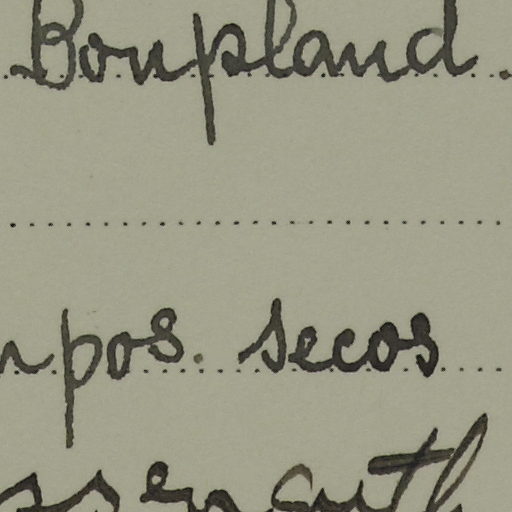 Bonpland.
mpos. secos